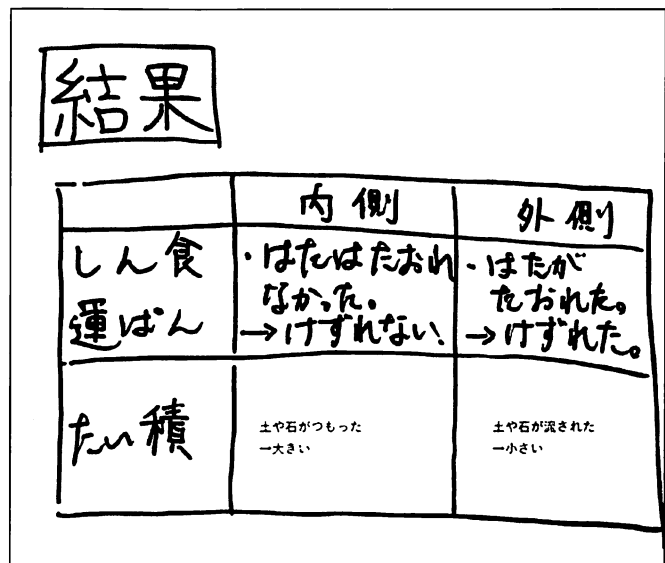 結果
内側
外側
しん食
運ぱん
・はたはたおれ
なかった。
→けずれない.
・はたが
たおれた。
→けずれた。
たい積
土や石がつもった
→大きい
土や石が流された
→小さい